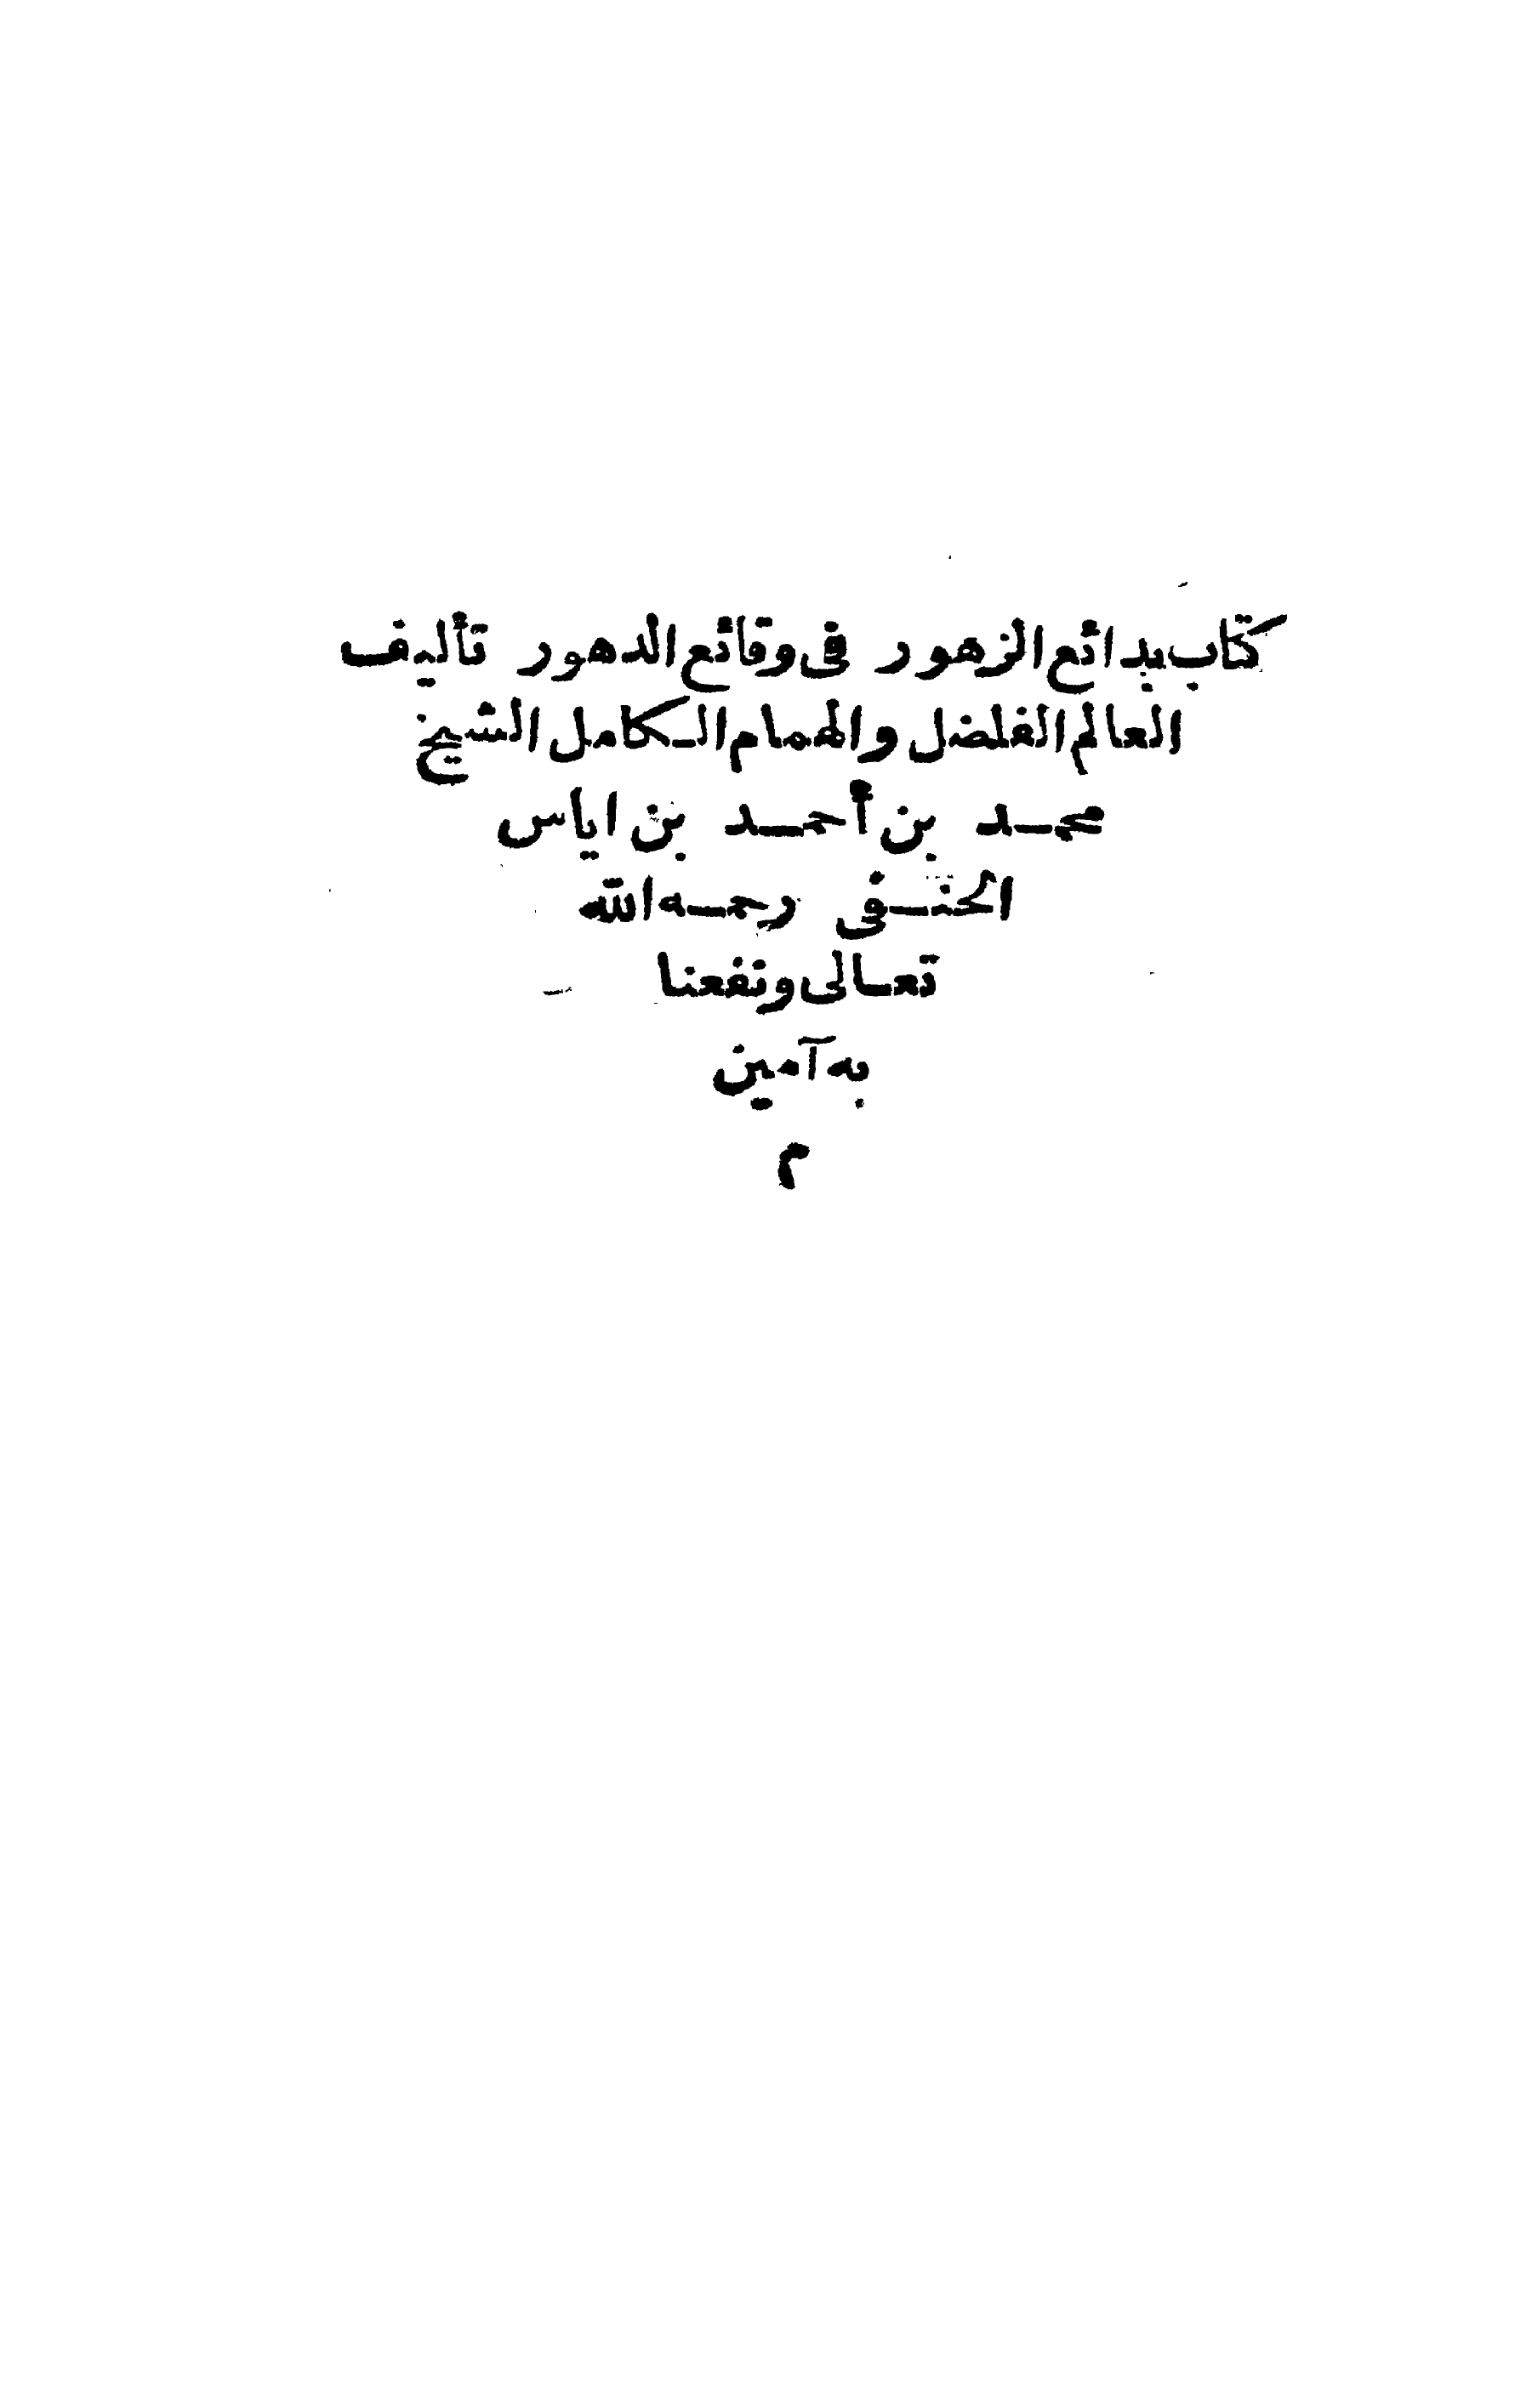 كتاب بدائع الزهور فى وقائع الدهور تأليف
العالم الفاضل والهمام الكامل الشيخ
محمد بن أحمد بن اياس
الحنفى رحمه الله
تعالى ونفعنا
به آمين
م